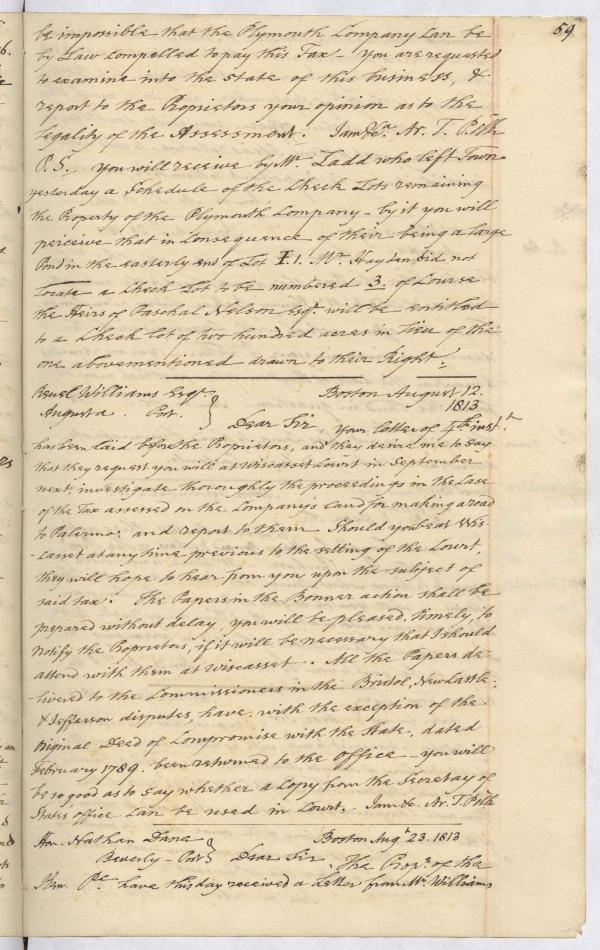 59
be impossible that the Plymouth Company can be
by Law compelled to pay this Tax – you are requested
to examine into the state of this business, &
report to the Proprietors your opinion as to the
legality of the Assessment. I am &c. Ar. T. P. Clk
P.S. you will receive by Mr. Ladd who left Town
yesterday a Schedule of the Check Lots remaining
the Property of the Plymouth Company – by it you will
perceive that in Consequence of their being a large
Pond in the easterly end of Lot I.1. Mr. Hayden did not
Locate a Check Lot to be numbered 3. of Course
the Heirs of Paschal Nelson Esqr. will be entitled
to a Check lot of two hundred acres in lieu of the
one abovementioned drawn to their Right.
Reuel Williams Esqr. Boston August 12.
Augusta. Post. } 1813
Dear Sir, your letter of 4th inst.
has been laid before the Proprietors, and they desire me to say
that they request you will at Wiscasset Court in September
next, investigate thoroughly the proceedings in the Case
of the Tax assessed on the Company's Land for making a road
to Palermo: and report to them. Should you be at Wis-
-casset at any time previous to the setting of the Court,
they will hope to hear from you upon the subject of
said tax. The Papers in the Bonner action shall be
prepared without delay, you will be pleased, timely, to
notify the Proprietors, if it will be necessary that I should
attend with them at Wiscasset. All the Papers de-
-livered to the Commissioners in the Bristol, New Castle,
& Jefferson disputes, have, with the exception of the
Original Deed of Compromise with the State, dated
February 1789. been returned to the Office – you will
be so good as to say whether a Copy from the Secretay of
State's office Can be used in Court. I am &c. Ar. T. P Clk
Hon. Nathan Dane } Boston Augt. 23. 1813
Beverly – Post } Dear Sir. The Propr. of the
Ken. Pe. have this day received a Letter from Mr. Williams